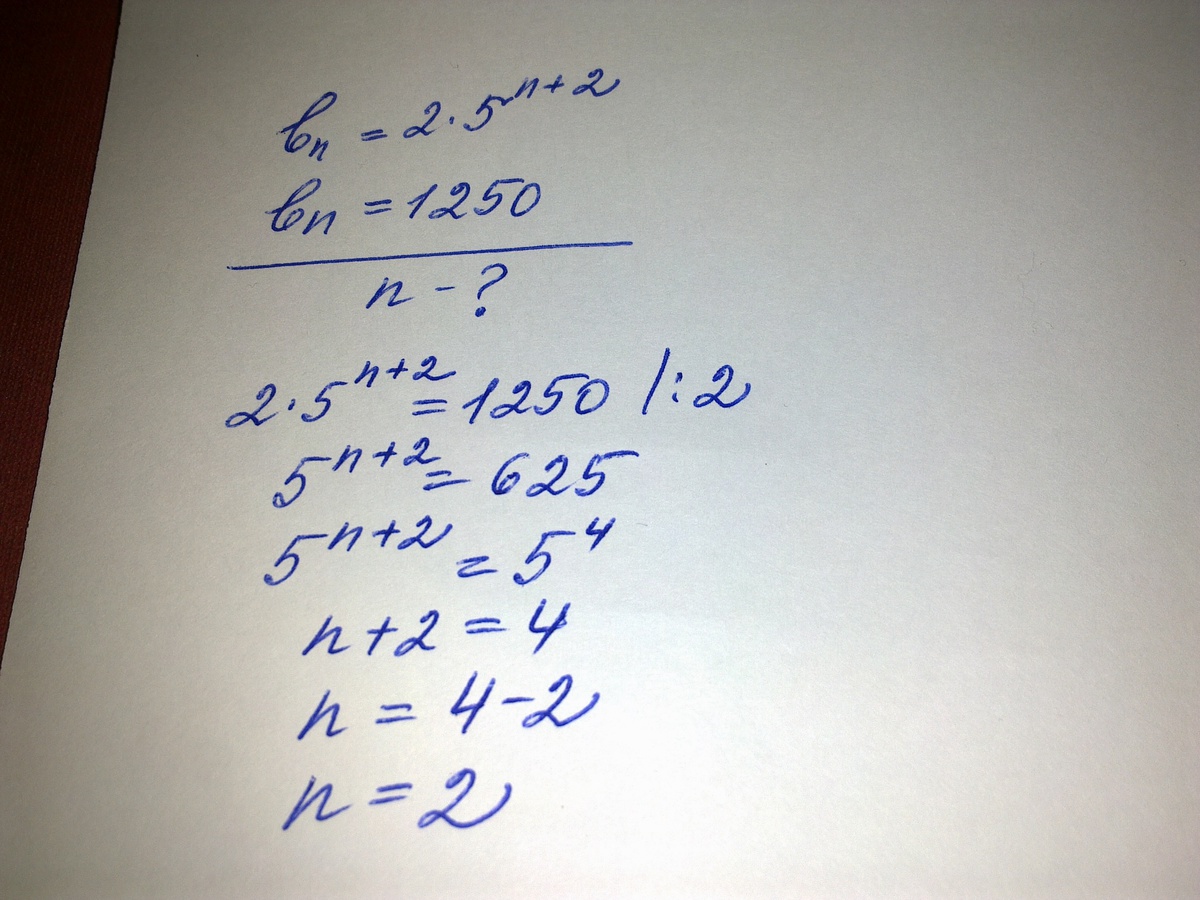 bₙ = 2·5ⁿ⁺²
bₙ = 1250
n - ?
2·5ⁿ⁺² = 1250 /:2
5ⁿ⁺² = 625
5ⁿ⁺² = 5⁴
n+2 = 4
n = 4-2
n = 2